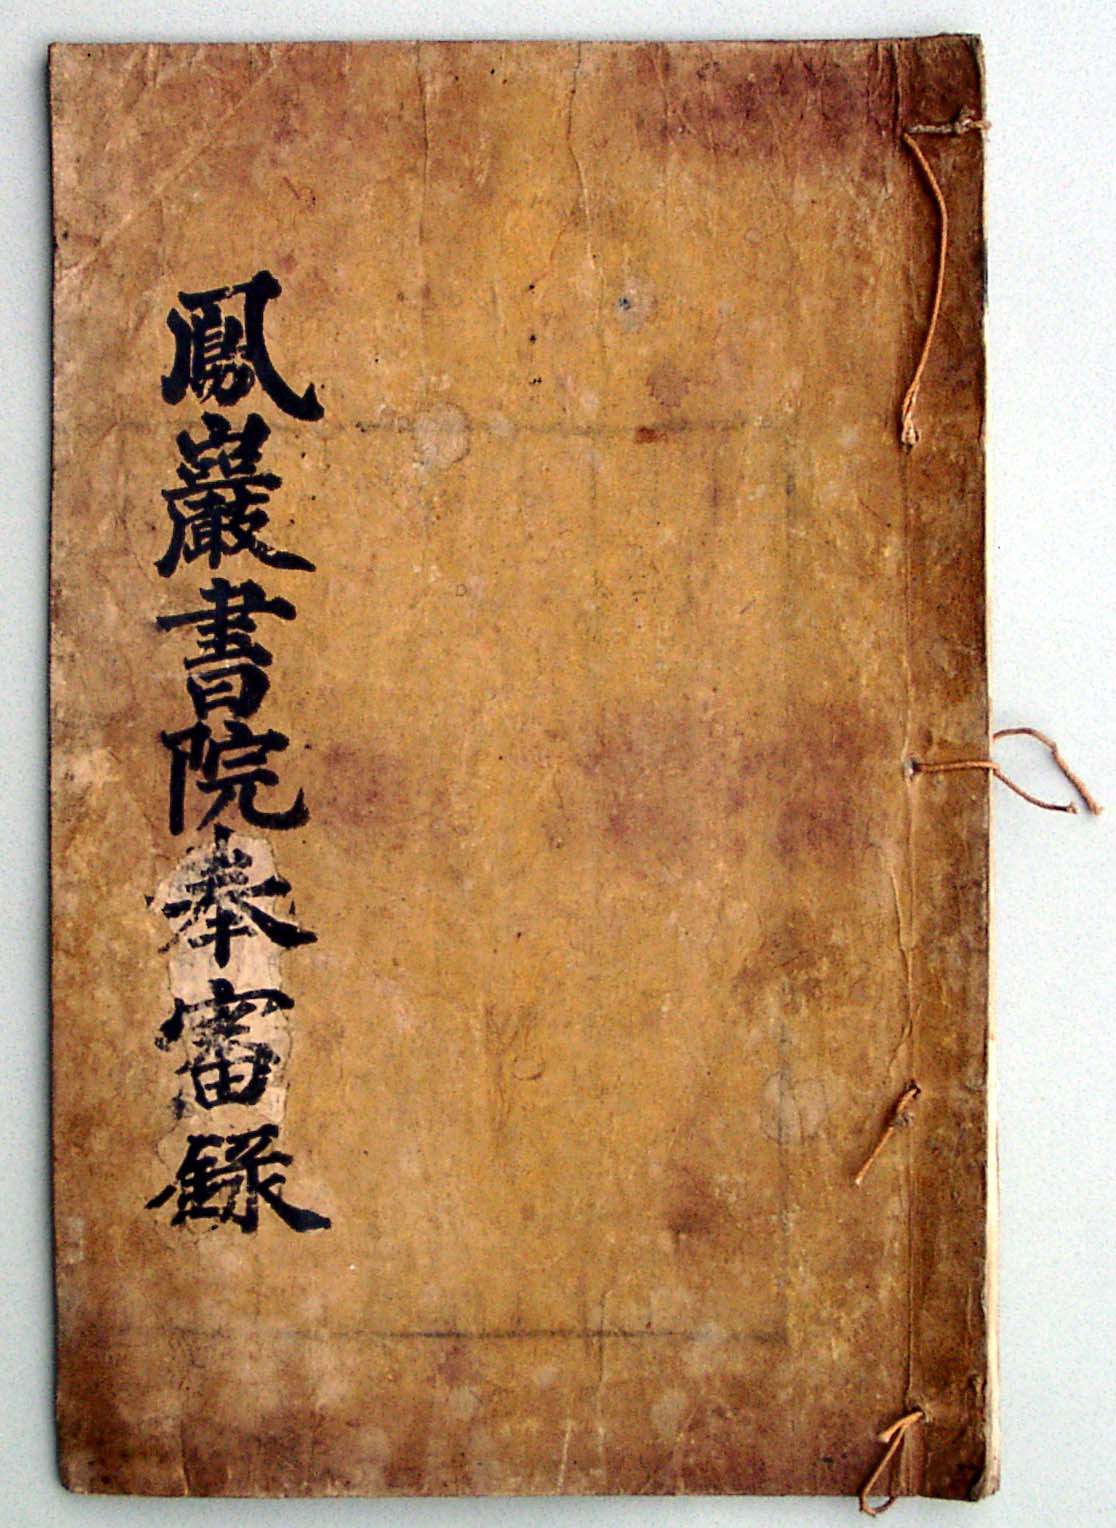 鳳巖書院奉審錄